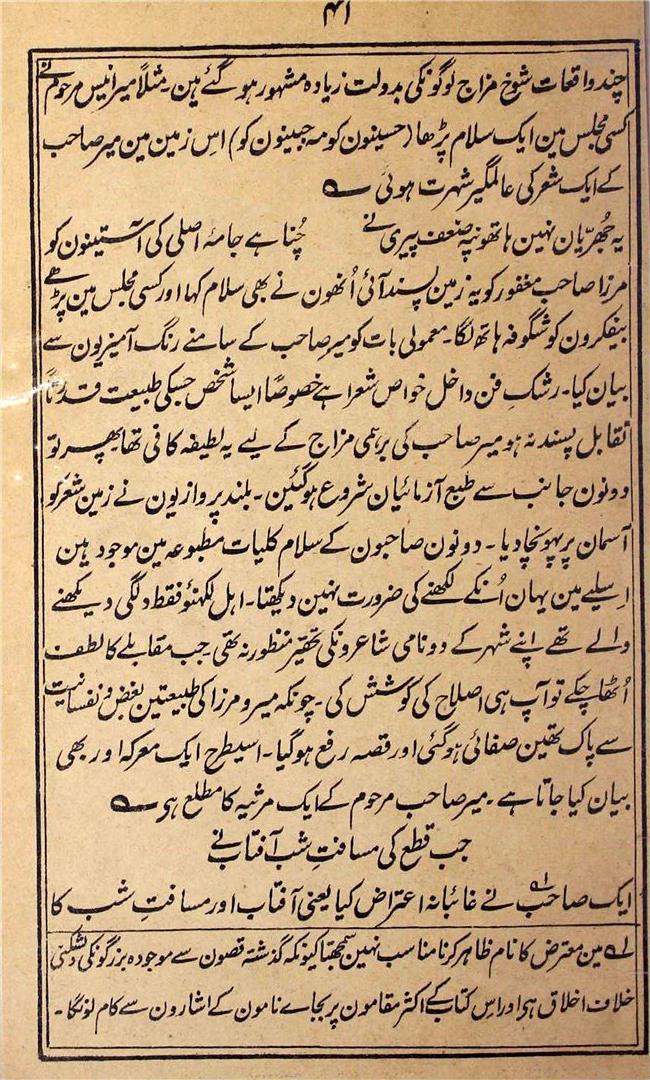 ۴۱
چند واقعات شوخ مزاج لوگونکی بدولت زیادہ مشہور ہو گئے ہین۔ مثلاً میر انیس مرحوم نے
کسی مجلس مین ایک سلام پڑھا (حسینون کو مہ جبینون کو) اِس زمین مین میر صاحب
کے ایک شعر کی عالمگیر شہرت ہوئی ؎
یہ جُھریّان نہین ہاتھونپہ ضعف پیری نے چُنا ہے جامۂ اصلی کی آستینون کو
مرزا صاحب مغفور کو یہ زمین پسند آئی اُنھون نے بھی سلام کہا اور کسی مجلس مین پڑھے
بیفکرون کو شگوفہ ہاتھ لگا۔ معمولی بات کو میر صاحب کے سامنے رنگ آمیزیون سے
بیان کیا۔ رشکِ فن داخل خواص شعرا ہے خصوصًا ایسا شخص جسکی طبیعت قدرتاً
تقابل پسند نہ ہو میر صاحب کی برہمی مزاج کے لیے یہ لطیفہ کافی تھا پھر تو
دونون جانب سے طبع آزمائیان شروع ہو گئین۔ بلند پروازیون نے زمین شعر کو
آسمان پر پہونچا دیا۔ دونون صاحبون کے سلام کلیات مطبوعہ مین موجود ہین
اِسلیے مین یہان اُنکے لکھنے کی ضرورت نہین دیکھتا۔ اہل لکھنؤ فقط دل لگی دیکھنے
والے تھے اپنے شہر کے دو نامی شاعرونکی تحقیر منظور نہ تھی۔ جب مقابلے کا لطف
اُٹھا چکے تو آپ ہی اصلاح کی کوشش کی۔ چونکہ میر و مرزا کی طبیعتین بغض و نفسانیت
سے پاک تھین صفائی ہو گئی اور قصہ رفع ہو گیا۔ اسیطرح ایک معرکہ اور بھی
بیان کیا جاتا ہے۔ میر صاحب مرحوم کے ایک مرثیہ کا مطلع ہی ؎
جب قطع کی مسافتِ شب آفتاب نے
ایک صاحب ۱؎ نے غائبانہ اعتراض کیا یعنی آفتاب اور مسافتِ شب کا
۱؎ مین معترض کا نام ظاہر کرنا مناسب نہین سمجھتا کیونکہ گذشتہ قصون سے موجودہ بزرگونکی دلشکنی
خلاف اخلاق ہی اور اِس کتاب کے اکثر مقامون پر بجاے نامون کے اشارون سے کام لونگا۔